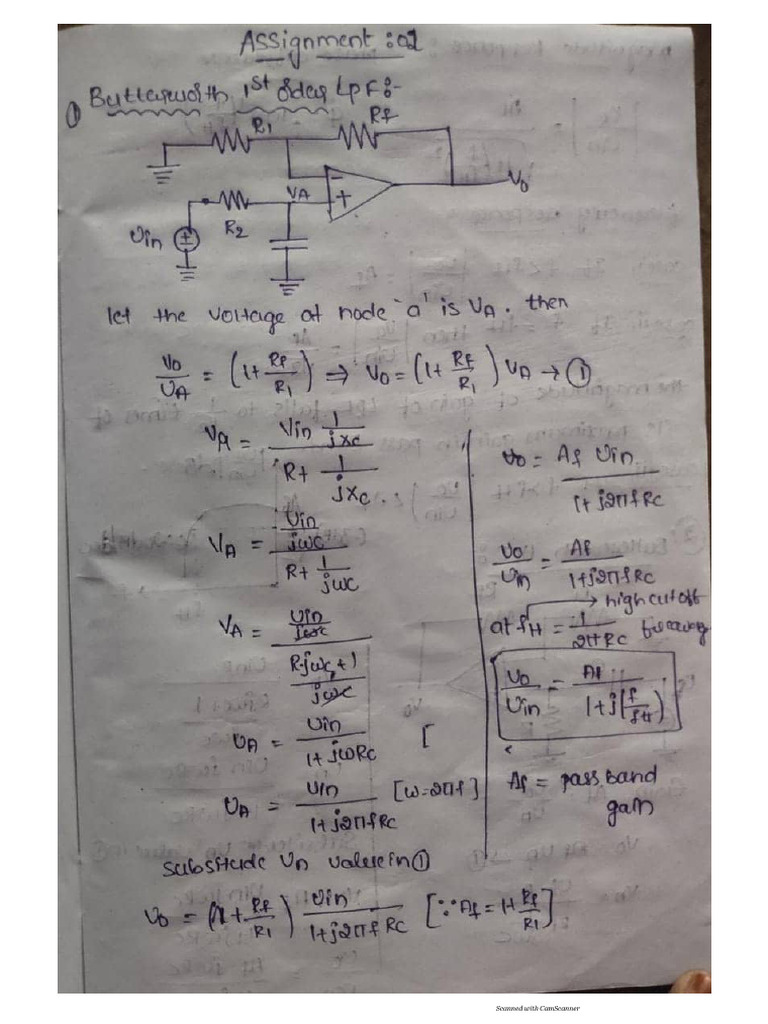 Assignment : 01
① Butterworth 1st order LPF :-
R1
Rf
VA
-
+
Vo
R2
Vin
±
let the voltage at node 'a' is VA. then
Vo/VA = (1+Rf/R1) ⇒ Vo = (1+Rf/R1) VA → ①
VA = (Vin 1/jXc)/(R+1/jXc)
VA = (Vin/jωc)/(R+1/jωc)
VA = (Vin/jωc)/((R·jωc+1)/jωc)
VA = Vin/(1+jωRc) [
VA = Vin/(1+j2πfRc) [ω=2πf]
substitude VA value in ①
Vo = (1+Rf/R1) Vin/(1+j2πfRc) [∵Af = 1+Rf/R1]
Vo = Af Vin/(1+j2πfRc)
Vo/Vin = Af/(1+j2πfRc)
→ high cutoff
at fH = 1/2πRc frequency
Vo/Vin = Af/(1+j(f/fH))
Af = pass band
gain
Scanned with CamScanner